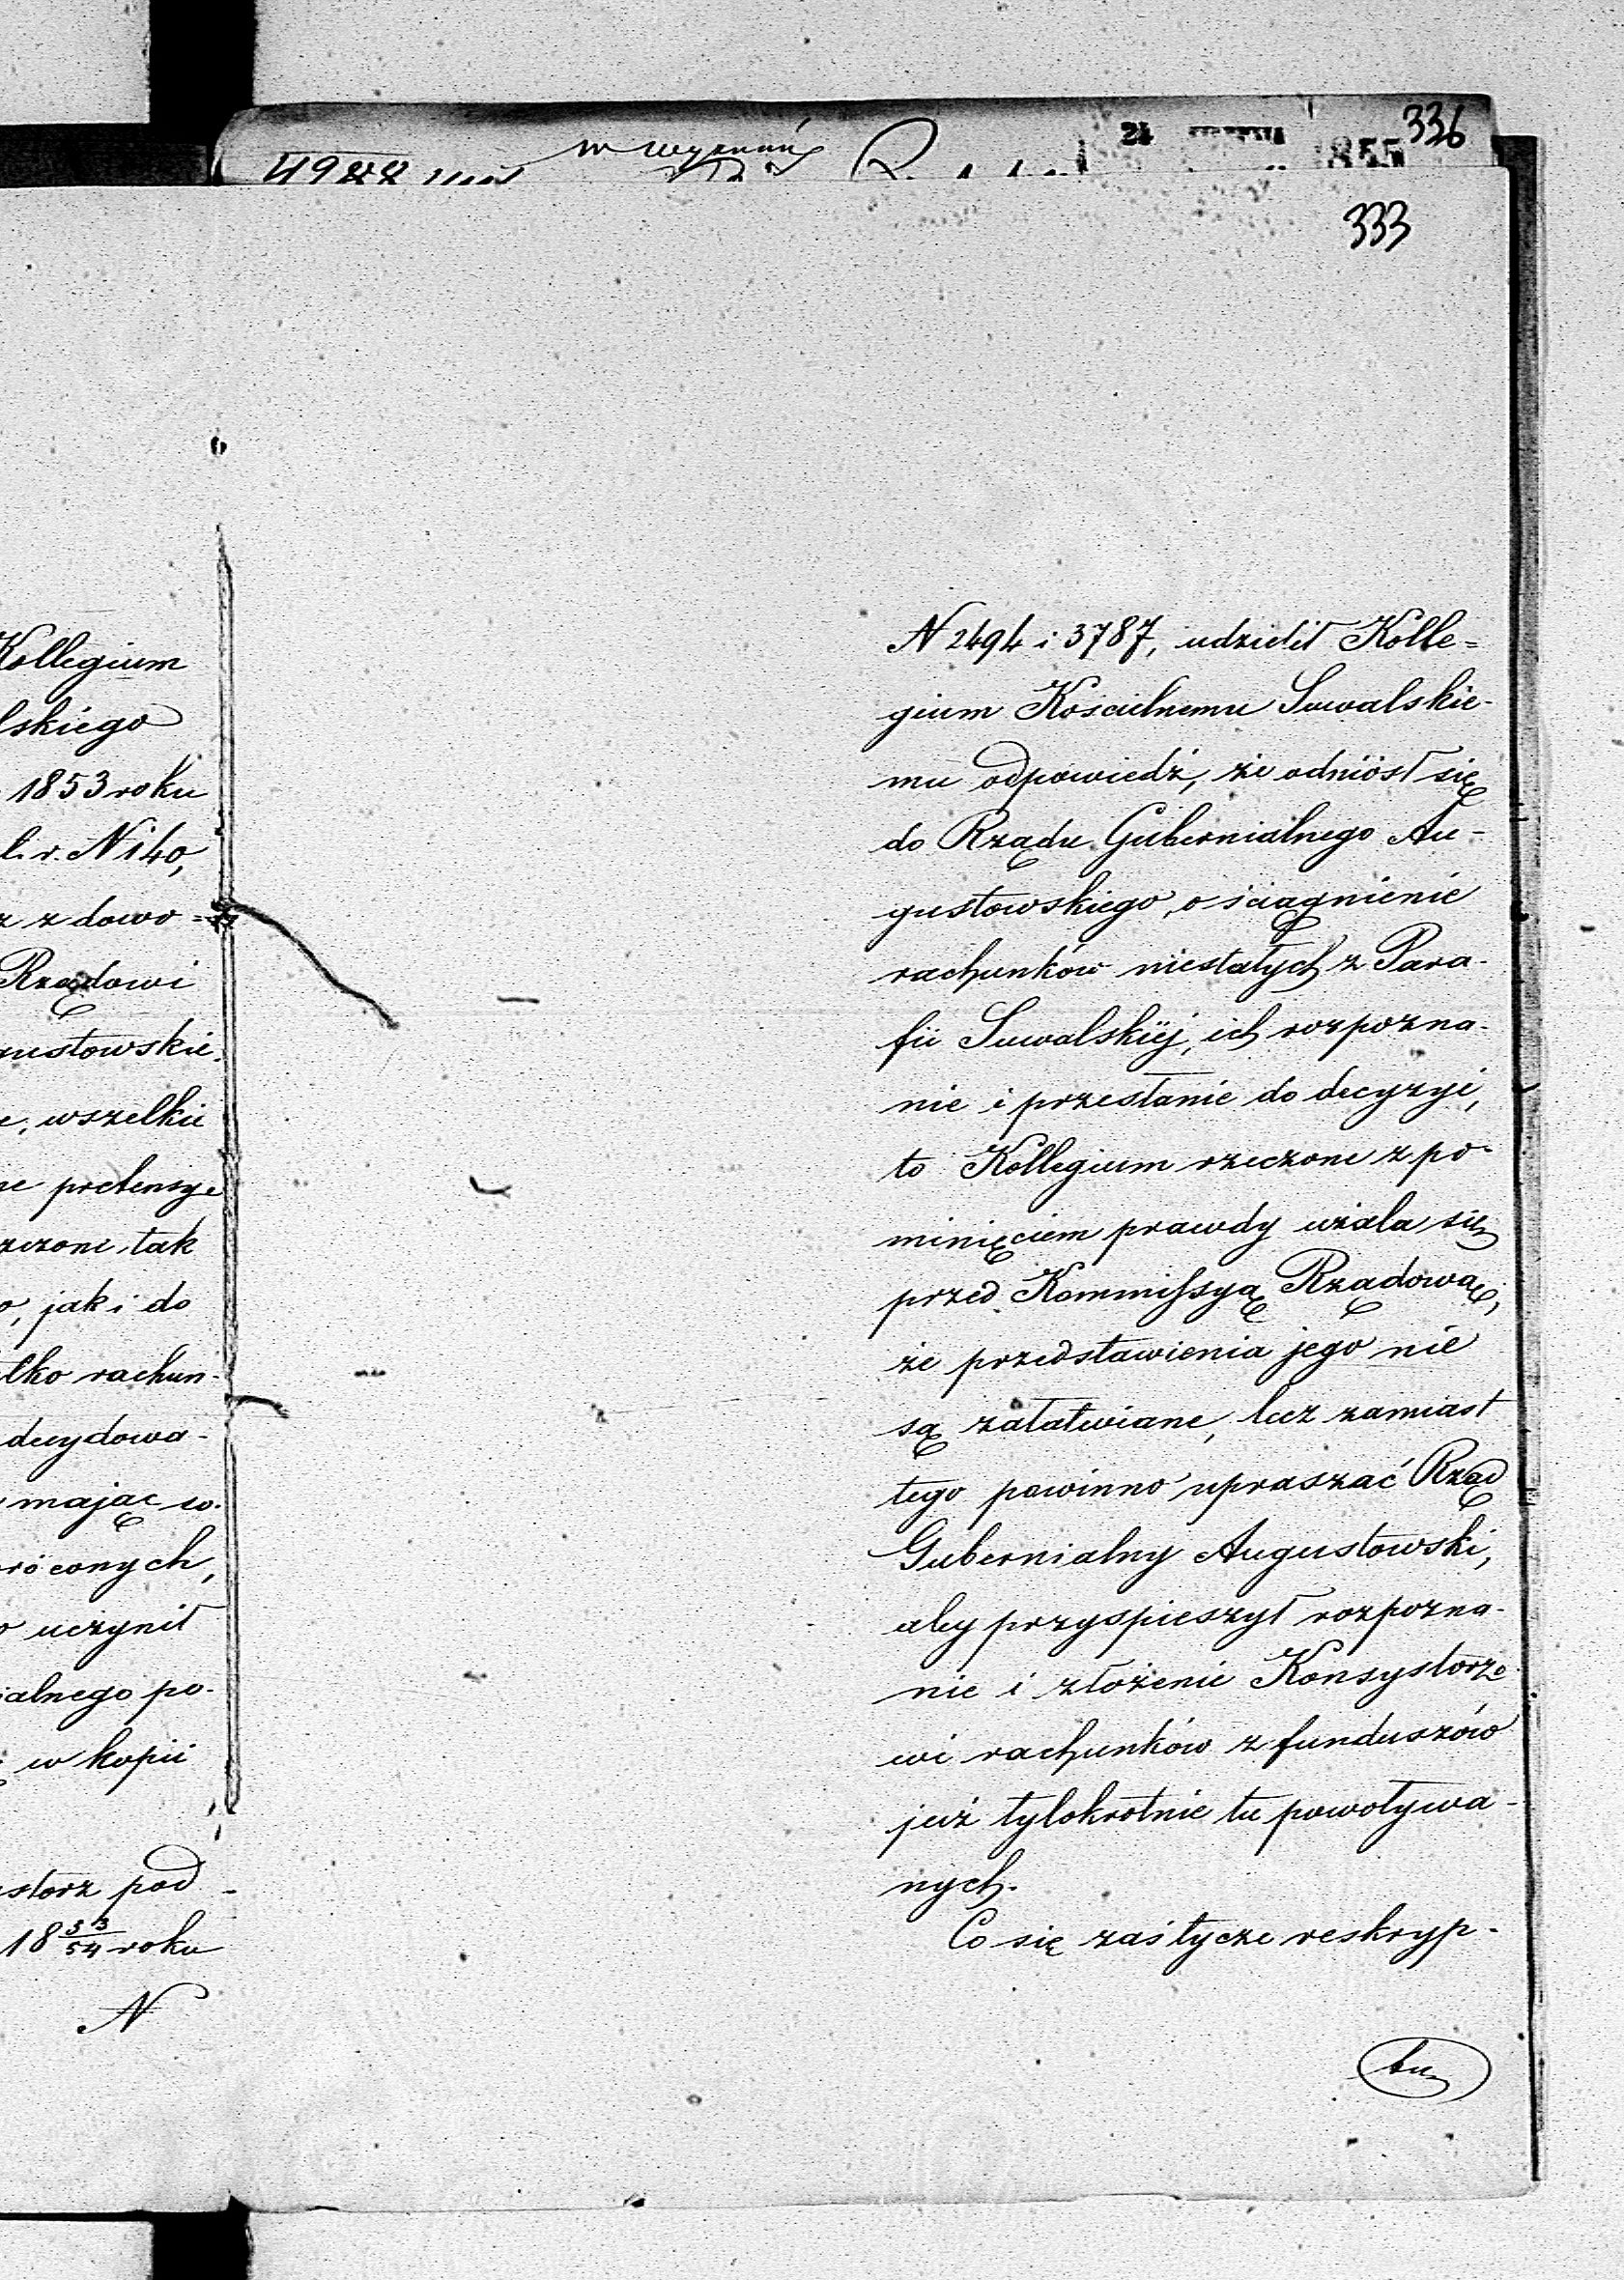 336
24
855
4988
w wyznań
333
Kollegium
lskiego
1853 roku
l. r. N 140,
z z dowo=
Rządowi
gustowskie.
e, wszelkie
ne pretensye
rzone, tak
o, jak i do
lko rachun-
decydowa-
mając w.
róconych,
o uczynił
ialnego po-
w kopii
storz pod
18 53/54 roku
N
N 2494 i 3787, udzielił Kolle=
gium Kościelnemu Suwalskie-
mu odpowiedź, że odniósł się
do Rządu Gubernialnego Au-
gustowskiego, o ściągnienie
rachunków niestałych z Para-
fii Suwalskiéj, ich rozpozna-
nie i przesłanie do decyzyi,
to Kollegium rzeczone z po-
minięciem prawdy użala się
przed Kommissyą Rządową,
że przedstawienia jego nie
są załatwiane, lecz zamiast
tego powinno upraszać Rząd
Gubernialny Augustowski,
aby przyspieszył rozpozna-
nie i złożenie Konsystorzo
wi rachunków z funduszów
już tylokrotnie tu powoływa-
nych.
Co się zaś tycze reskryp-
tu